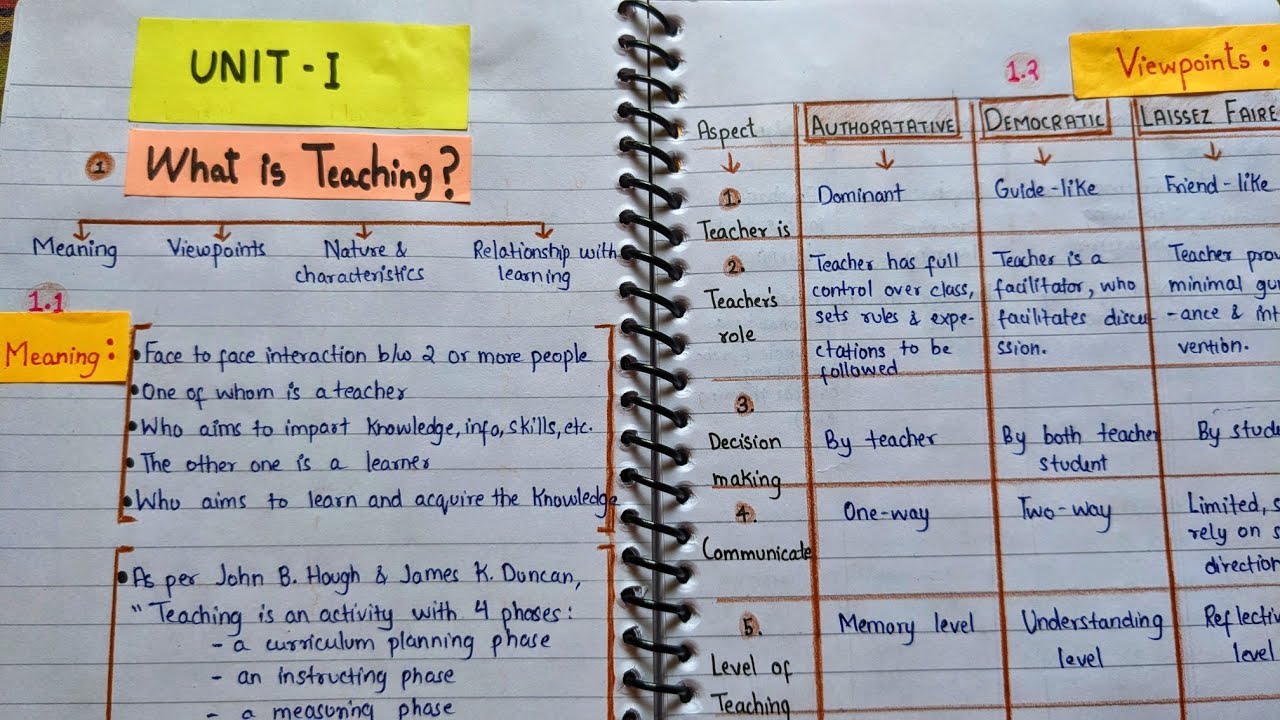 UNIT - I
1 What is Teaching?
Meaning Viewpoints Nature & Relationship with
characteristics learning
1.1
Meaning:
• Face to face interaction b/w 2 or more people
• One of whom is a teacher
• Who aims to impart knowledge, info, skills, etc.
• The other one is a learner
• Who aims to learn and acquire the knowledge
• As per John B. Hough & James K. Duncan,
"Teaching is an activity with 4 phases:
- a curriculum planning phase
- an instructing phase
- a measuring phase
1.2 Viewpoints:
Aspect AUTHORATATIVE DEMOCRATIC LAISSEZ FAIRE
1.
Teacher is
Dominant
Guide-like
Friend-like
2.
Teacher's
role
Teacher has full
control over class,
sets rules & expe-
ctations to be
followed
Teacher is a
facilitator, who
facilitates discu-
ssion.
Teacher
minimal
-ance &
vention.
3.
Decision
making
By teacher
By both teacher
student
By
4.
Communicate
One-way
Two-way
Limited,
rely on
direction
5.
Level of
Teaching
Memory level
Understanding
level
level